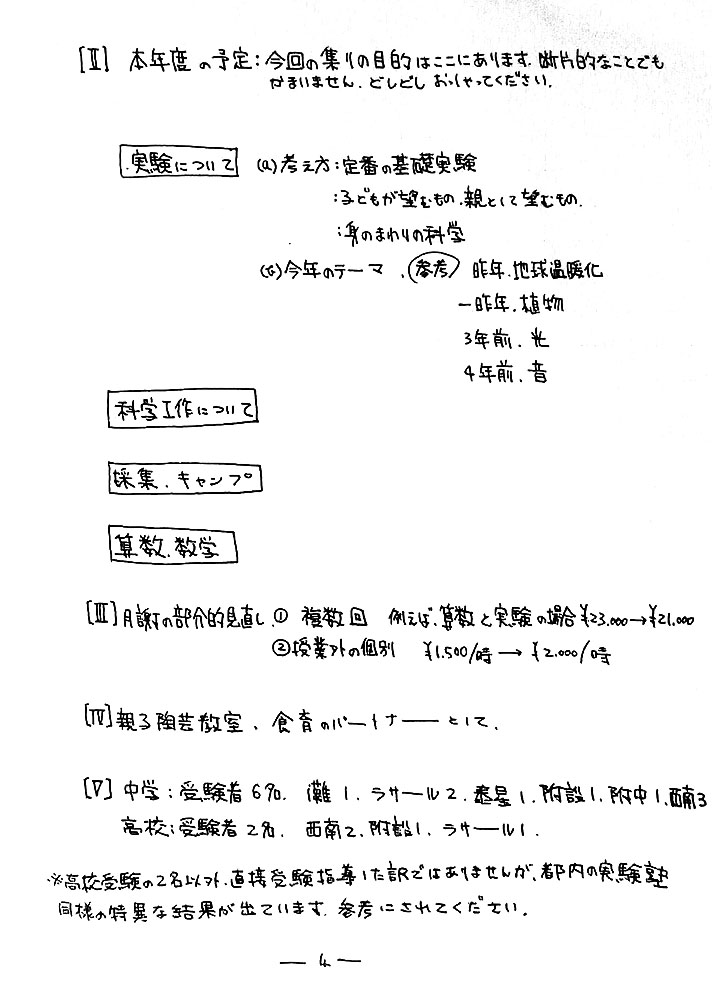 [Ⅱ] 本年度の予定：今回の集りの目的はここにあります。断片的なことでも
かまいません。どしどしおっしゃってください。
実験について (a)考え方：定番の基礎実験
：子どもが望むもの、親として望むもの。
：身のまわりの科学
(b)今年のテーマ、(参考) 昨年、地球温暖化
一昨年、植物
3年前、光
4年前、音
科学工作について
採集、キャンプ
算数、数学
[Ⅲ]月謝の部分的見直し、① 複数回 例えば、算数と実験の場合¥23.000→¥21.000
②授業外の個別 ¥1.500/時→¥2.000/時
[Ⅳ]親子陶芸教室、食育のパートナーとして、
[Ⅴ] 中学：受験者6名、灘1、ラサール2、愛星1、附設1、附中1、西南3
高校：受験者2名、西南2、附設1、ラサール1、
※高校受験の2名以外、直接受験指導した訳ではありませんが、都内の実験塾
同様の特異な結果が出ています。参考にされてください。
— 4 —